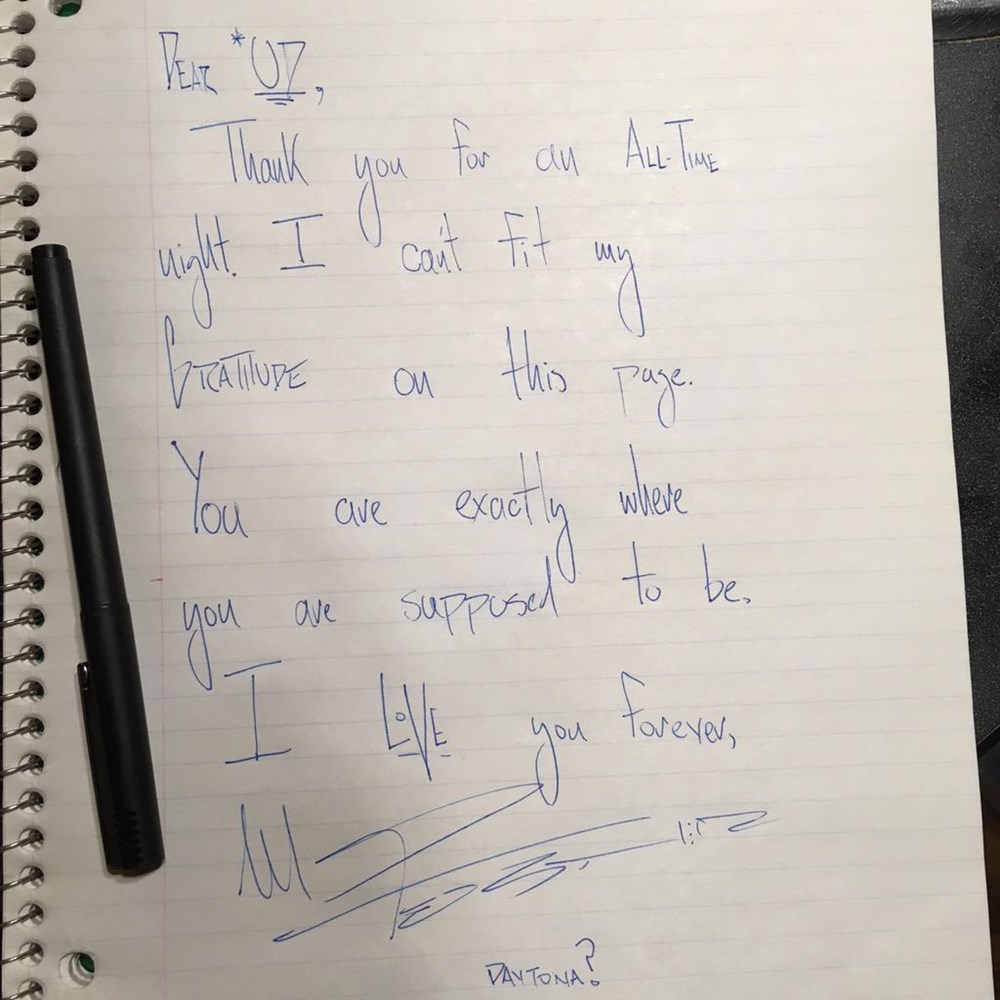 DEAR *UD,
Thank you for an ALL-TIME
night. I can't fit my
GRATITUDE on this page.
You are exactly where
you are supposed to be.
I LOVE you forever,
DAYTONA?